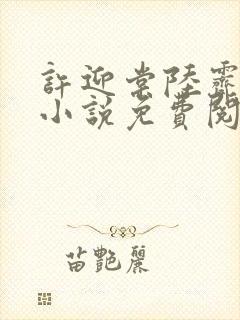 許迎常陸霽
小說免費閱
苗艷麗